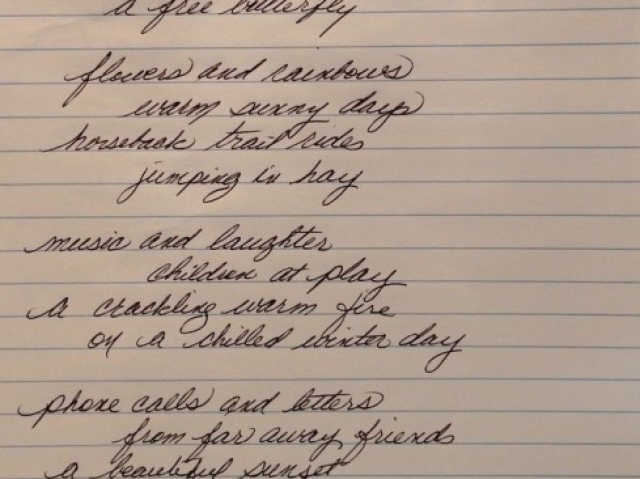 a free butterfly
flowers and rainbows
warm sunny days
horseback trail rides
jumping in hay
music and laughter
children at play
a crackling warm fire
on a chilled winter day
phone calls and letters
from far away friends
a beautiful sunset